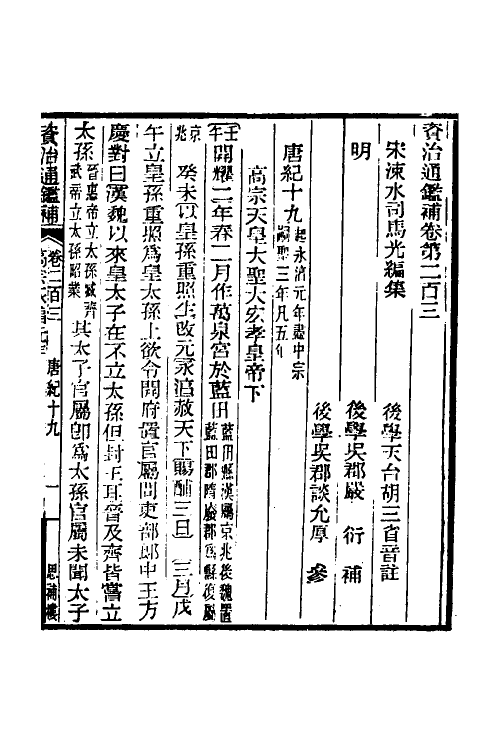 資治通鑑補卷第二百三
宋涑水司馬光編集
後學天台胡三省音註
明
後學吳郡嚴 衍 補
後學吳郡談允厚 參
唐紀十九 起永淳元年盡中宗嗣聖三年凡五年
高宗天皇大聖大宏孝皇帝下
壬午 開耀二年春二月作萬泉宮於藍田 藍田縣漢屬京兆後魏置藍田郡隋廢郡爲縣復屬
京兆 癸未以皇孫重照生改元永淳赦天下賜酺三日 三月戊
午立皇孫重照爲皇太孫上欲令開府置官屬問吏部郎中王方
慶對曰漢魏以來皇太子在不立太孫但封王耳晉及齊皆嘗立
太孫 晉惠帝立太孫臧齊武帝立太孫昭業 其太子官屬卽爲太孫官屬未聞太子
資治通鑑補 卷二百三 唐紀十九 一 思補樓